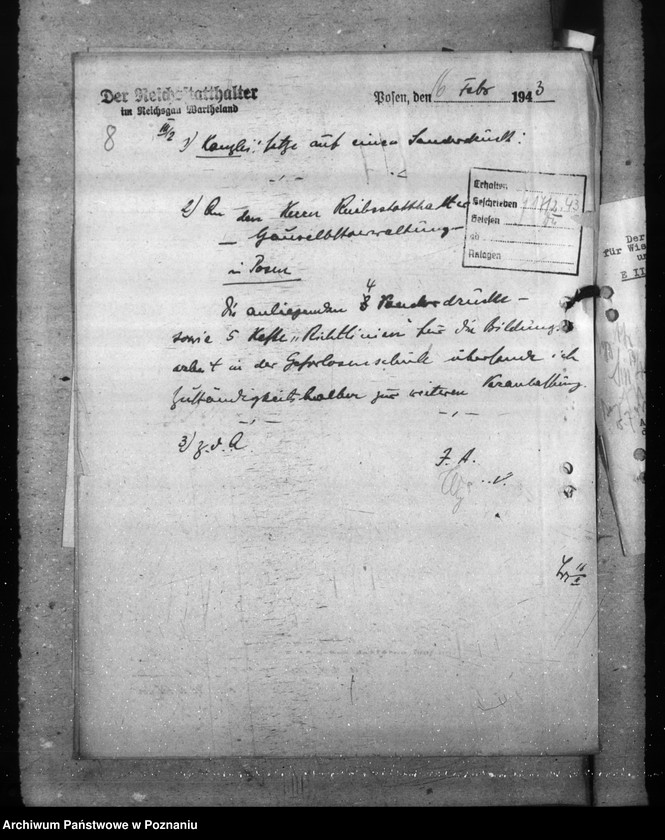 Der Reichsstatthalter
im Reichsgau Wartheland
Posen, den 16 Febr 1943
8
1) Kanzlei: setze auf einen Sonderdruck:
2) An den Herrn Reichsstatthalter
– Gauselbstverwaltung –
in Posen
Erhalten
Geschrieben
Gelesen
ab
Anlagen
Die anliegenden 4 Sonderdrucke –
sowie 5 Hefte „Richtlinien für die Bildungs-
arbeit in der Gehörlosenschule übersende ich
zuständigkeitshalber zur weiteren Veranlassung.
3) z. d. A
J. A.
Der
für Wis
un
E II
Archiwum Państwowe w Poznaniu